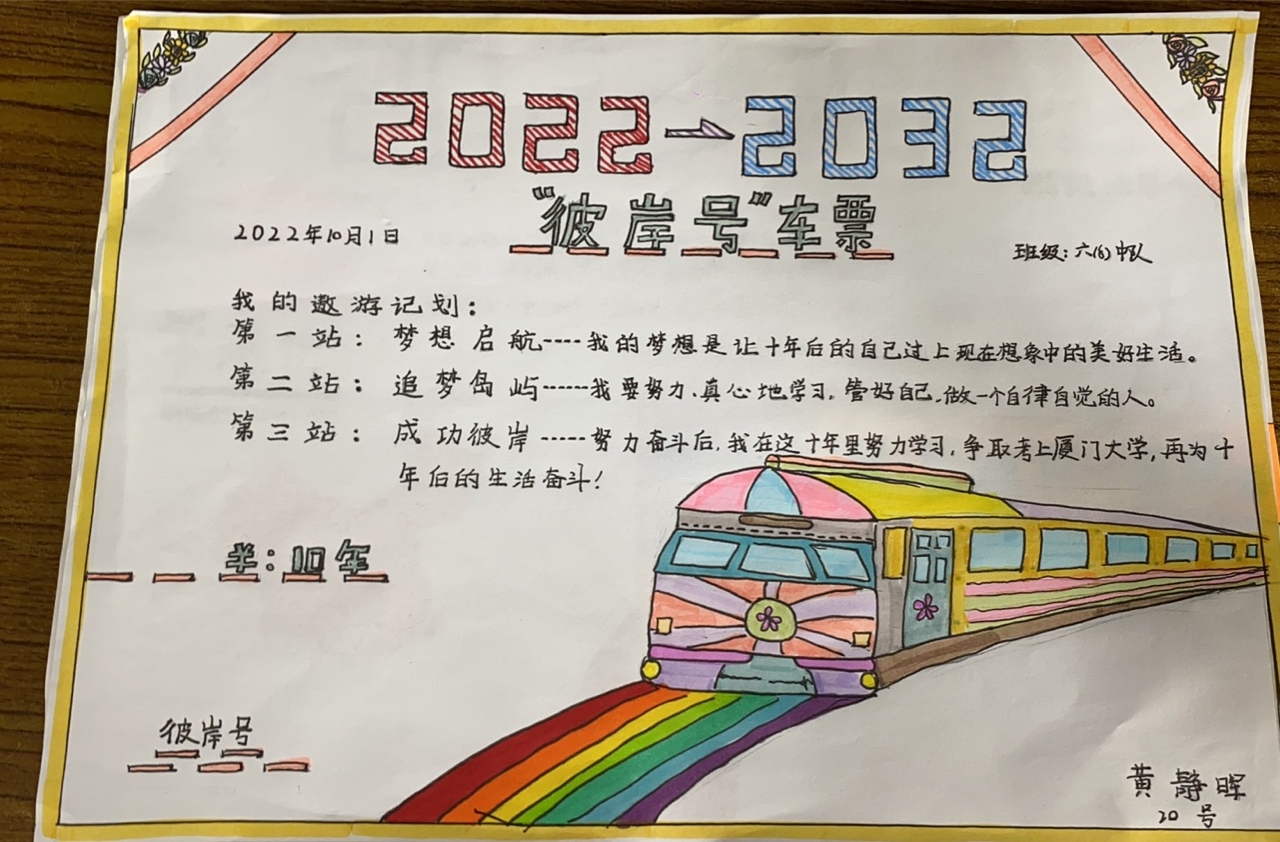 2022→2032
“彼岸号”车票
2022年10月1日
班级:六(6)中队
我的遨游记划:
第一站:梦想启航----我的梦想是让十年后的自己过上现在想象中的美好生活。
第二站:追梦岛屿------我要努力、真心地学习,管好自己,做一个自律自觉的人。
第三站:成功彼岸-----努力奋斗后,我在这十年里努力学习,争取考上厦门大学,再为十
年后的生活奋斗!
半:10年
彼岸号
黄静晖
20号